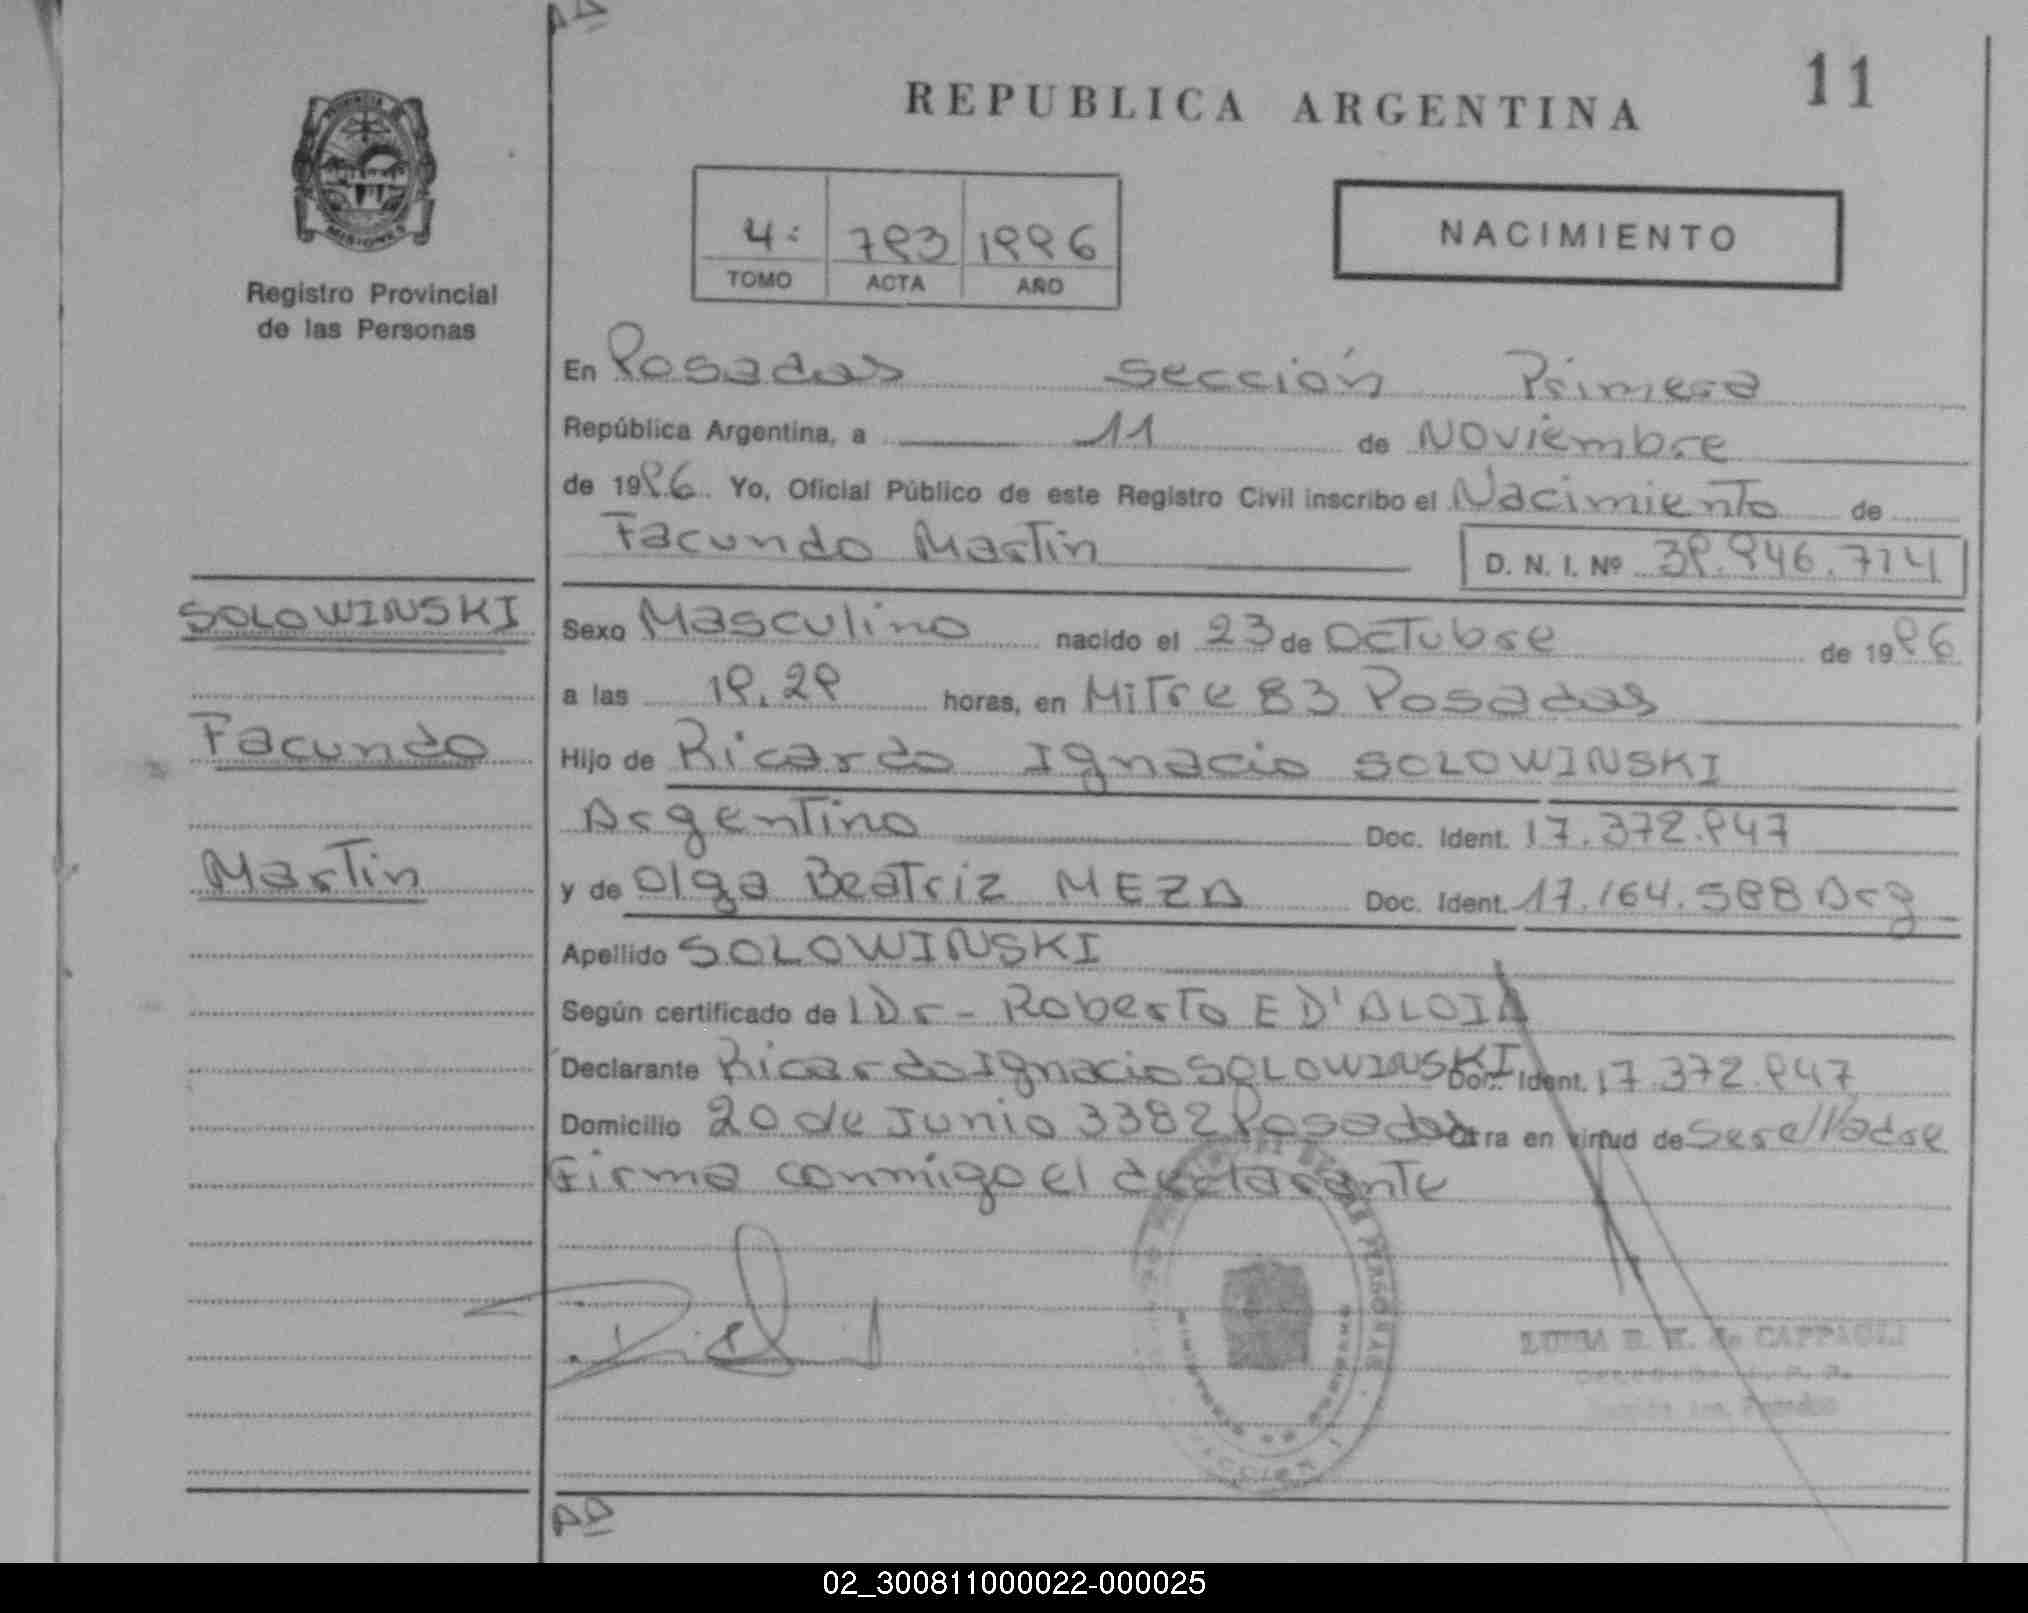 AD
REPUBLICA ARGENTINA
11
PROVINCIA
MISIONES
Registro Provincial
de las Personas
4: 793 1996
TOMO ACTA AÑO
NACIMIENTO
En Posadas sección Primera
República Argentina, a 11 de Noviembre
de 1996 Yo, Oficial Público de este Registro Civil inscribo el Nacimiento de
Facundo Martin
D. N. I. Nº 39.946.714
SOLOWINSKI
Facundo
Martin
Sexo Masculino nacido el 23 de Octubre de 1996
a las 19.29 horas, en Mitre 83 Posadas
Hijo de Ricardo Ignacio SOLOWINSKI
Argentino Doc. Ident. 17.372.947
y de Olga Beatriz MEZA Doc. Ident. 17.164.588 Arg
Apellido SOLOWINSKI
Según certificado de l Dr - Roberto E D'ALOIA
Declarante Ricardo Ignacio SOLOWINSKI Doc. Ident. 17.372.947
Domicilio 20 de Junio 3382 Posadas Obra en virtud de Ser el Padre
Firma conmigo el declarante
LUISA de CAPPAGLI
AD
02_300811000022-000025